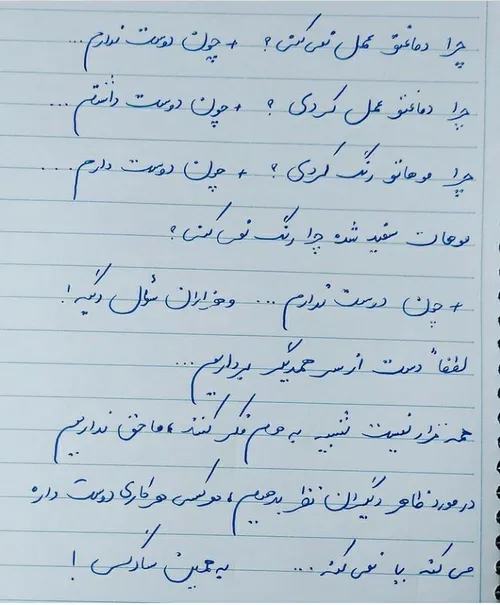 چرا دماغتو عمل نمی‌کنی؟ + چون دوست ندارم...
چرا دماغتو عمل کردی؟ + چون دوست داشتم...
چرا موهاتو رنگ کردی؟ + چون دوست دارم....
موهات سفید شده چرا رنگ نمی‌کنی؟
+ چون دوست ندارم... و هزاران سؤال دیگه!
لطفاً دست از سر همدیگر برداریم...
همه قرار نیست شبیه به هم فکر کنند، ما حق نداریم
در مورد ظاهر دیگران نظر بدهیم، هر کسی هر کاری دوست داره
می‌کنه یا نمی‌کنه... به همین سادگی!